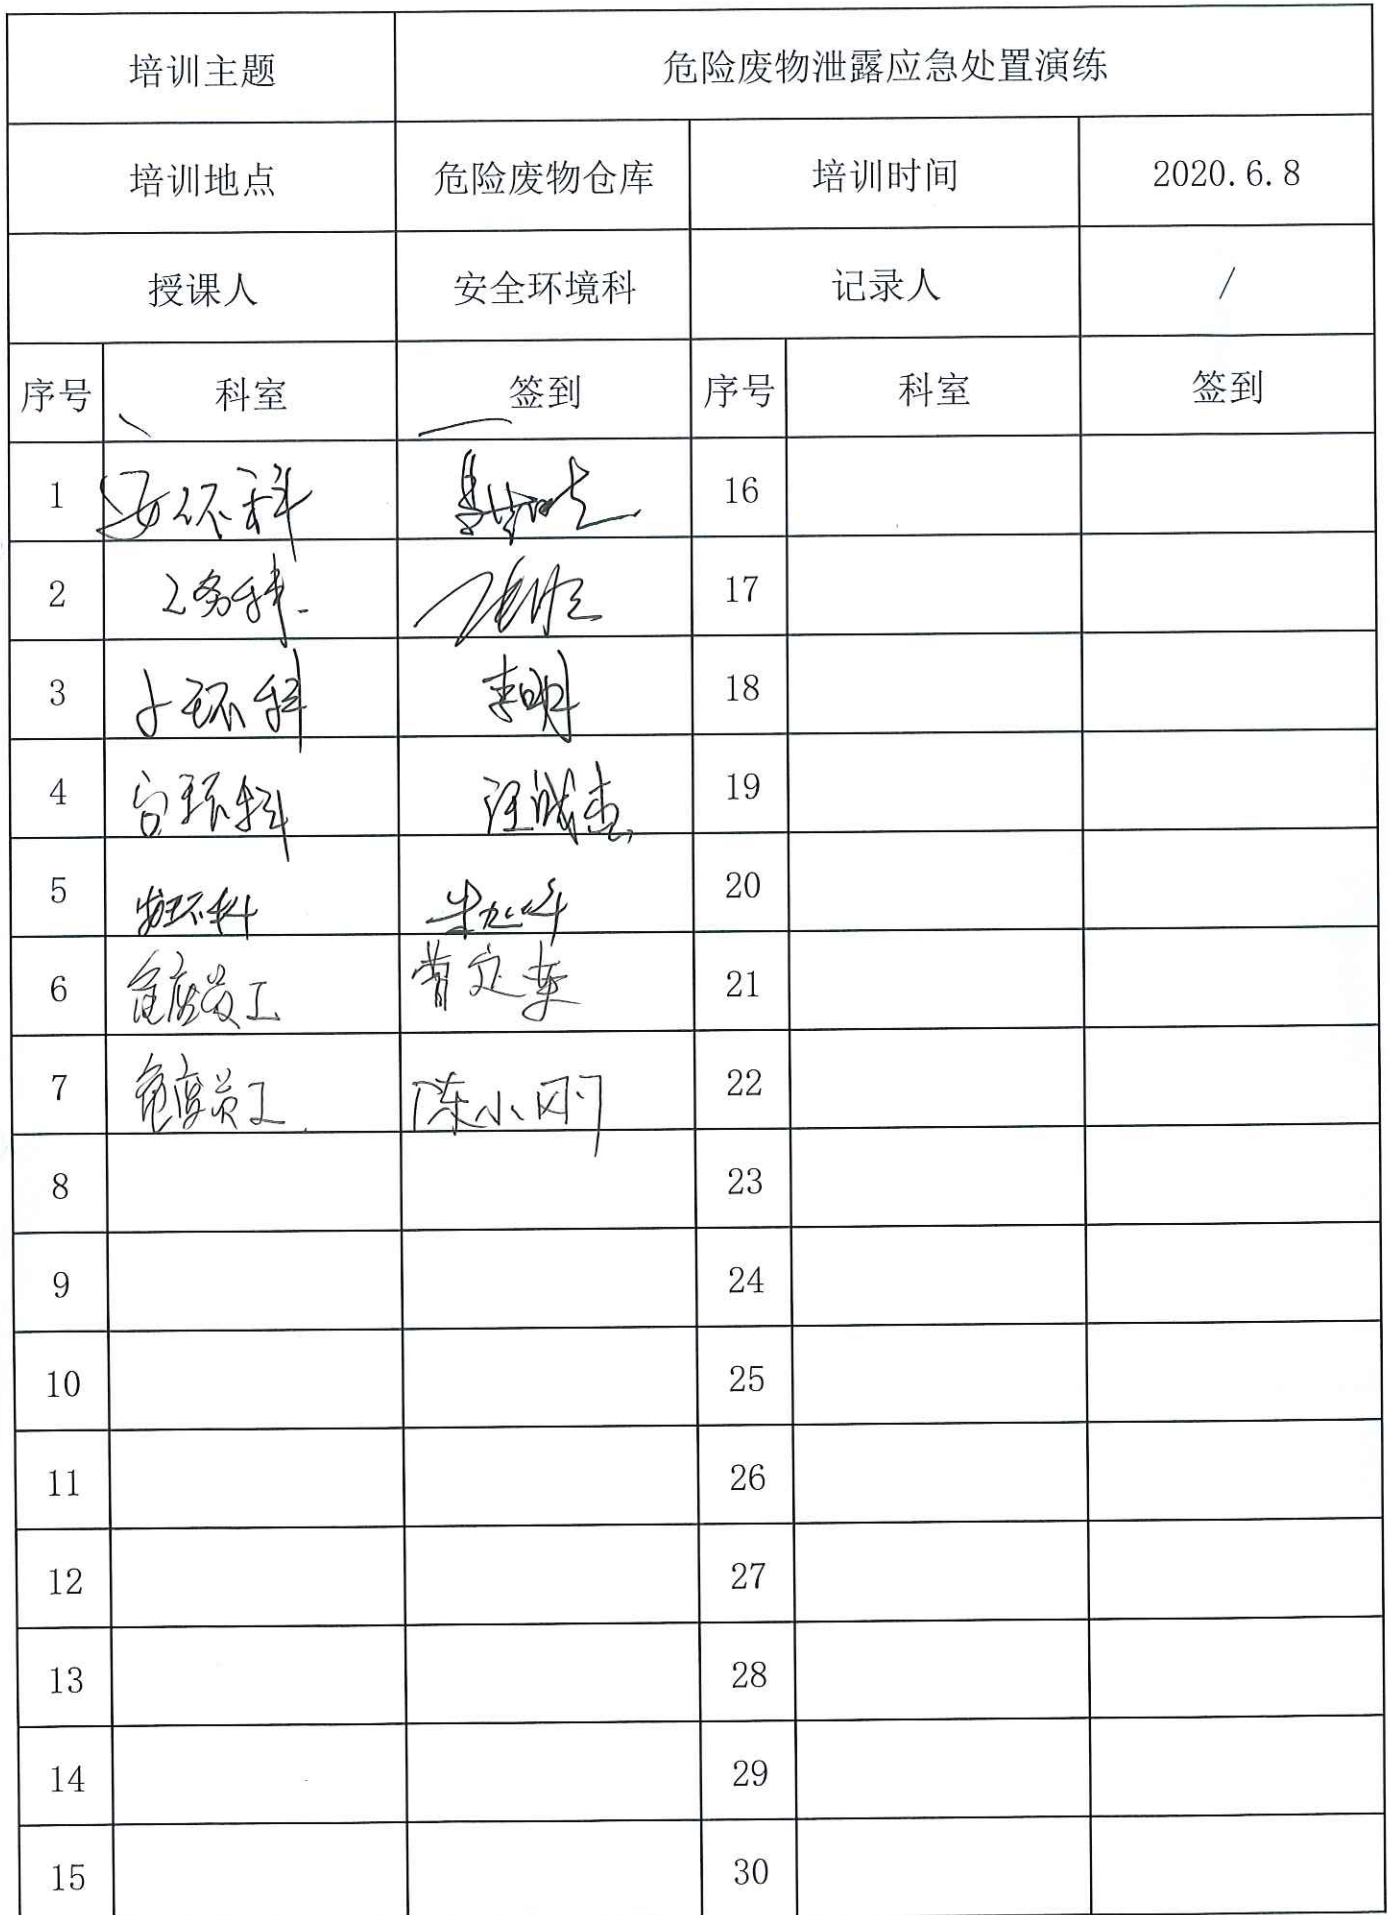 培训主题 危险废物泄露应急处置演练
培训地点 危险废物仓库 培训时间 2020.6.8
授课人 安全环境科 记录人 /
序号 科室 签到 序号 科室 签到
1 安环科 16
2 工务科 17
3 安环科 李明 18
4 安环科 汪诚杰 19
5 安环科 20
6 危废员工 曹定军 21
7 危废员工 陈小刚 22
8 23
9 24
10 25
11 26
12 27
13 28
14 29
15 30